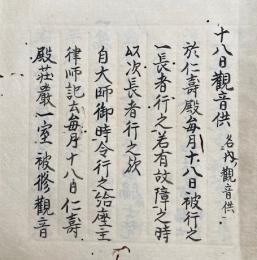 十八日觀音供 名内觀音供
於仁壽殿毎月十八日被行之
一長者行之若有故障之時
以次長者行之歟
自大師御時令行之給座主
律師記云毎月十八日仁壽
殿荘嚴一室被修觀音